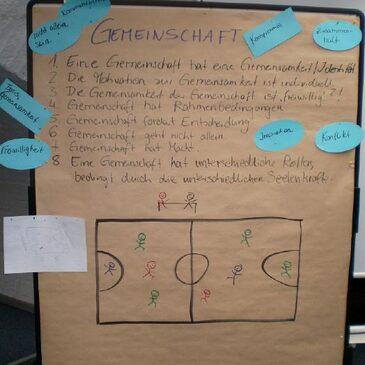 Kommunikation
nicht allein
sein
Kompromiß
Zusammen-
halt
GEMEINSCHAFT
1. Eine Gemeinschaft hat eine Gemeinsamkeit /
2. Die Motivation zur Gemeinsamkeit ist individuell
3. Die Gemeinsamkeit der Gemeinschaft ist "freiwillig" ?!
4 Gemeinschaft hat Rahmenbedingungen
5 Gemeinschaft fordert Entscheidung
6 Gemeinschaft geht nicht allein
7 Gemeinschaft hat Macht
8 Eine Gemeinschaft hat unterschiedliche Rollen,
bedingt durch die unterschiedlichen Seelenkräfte.
Gemeinsamkeit
Freiwilligkeit
Konflikt